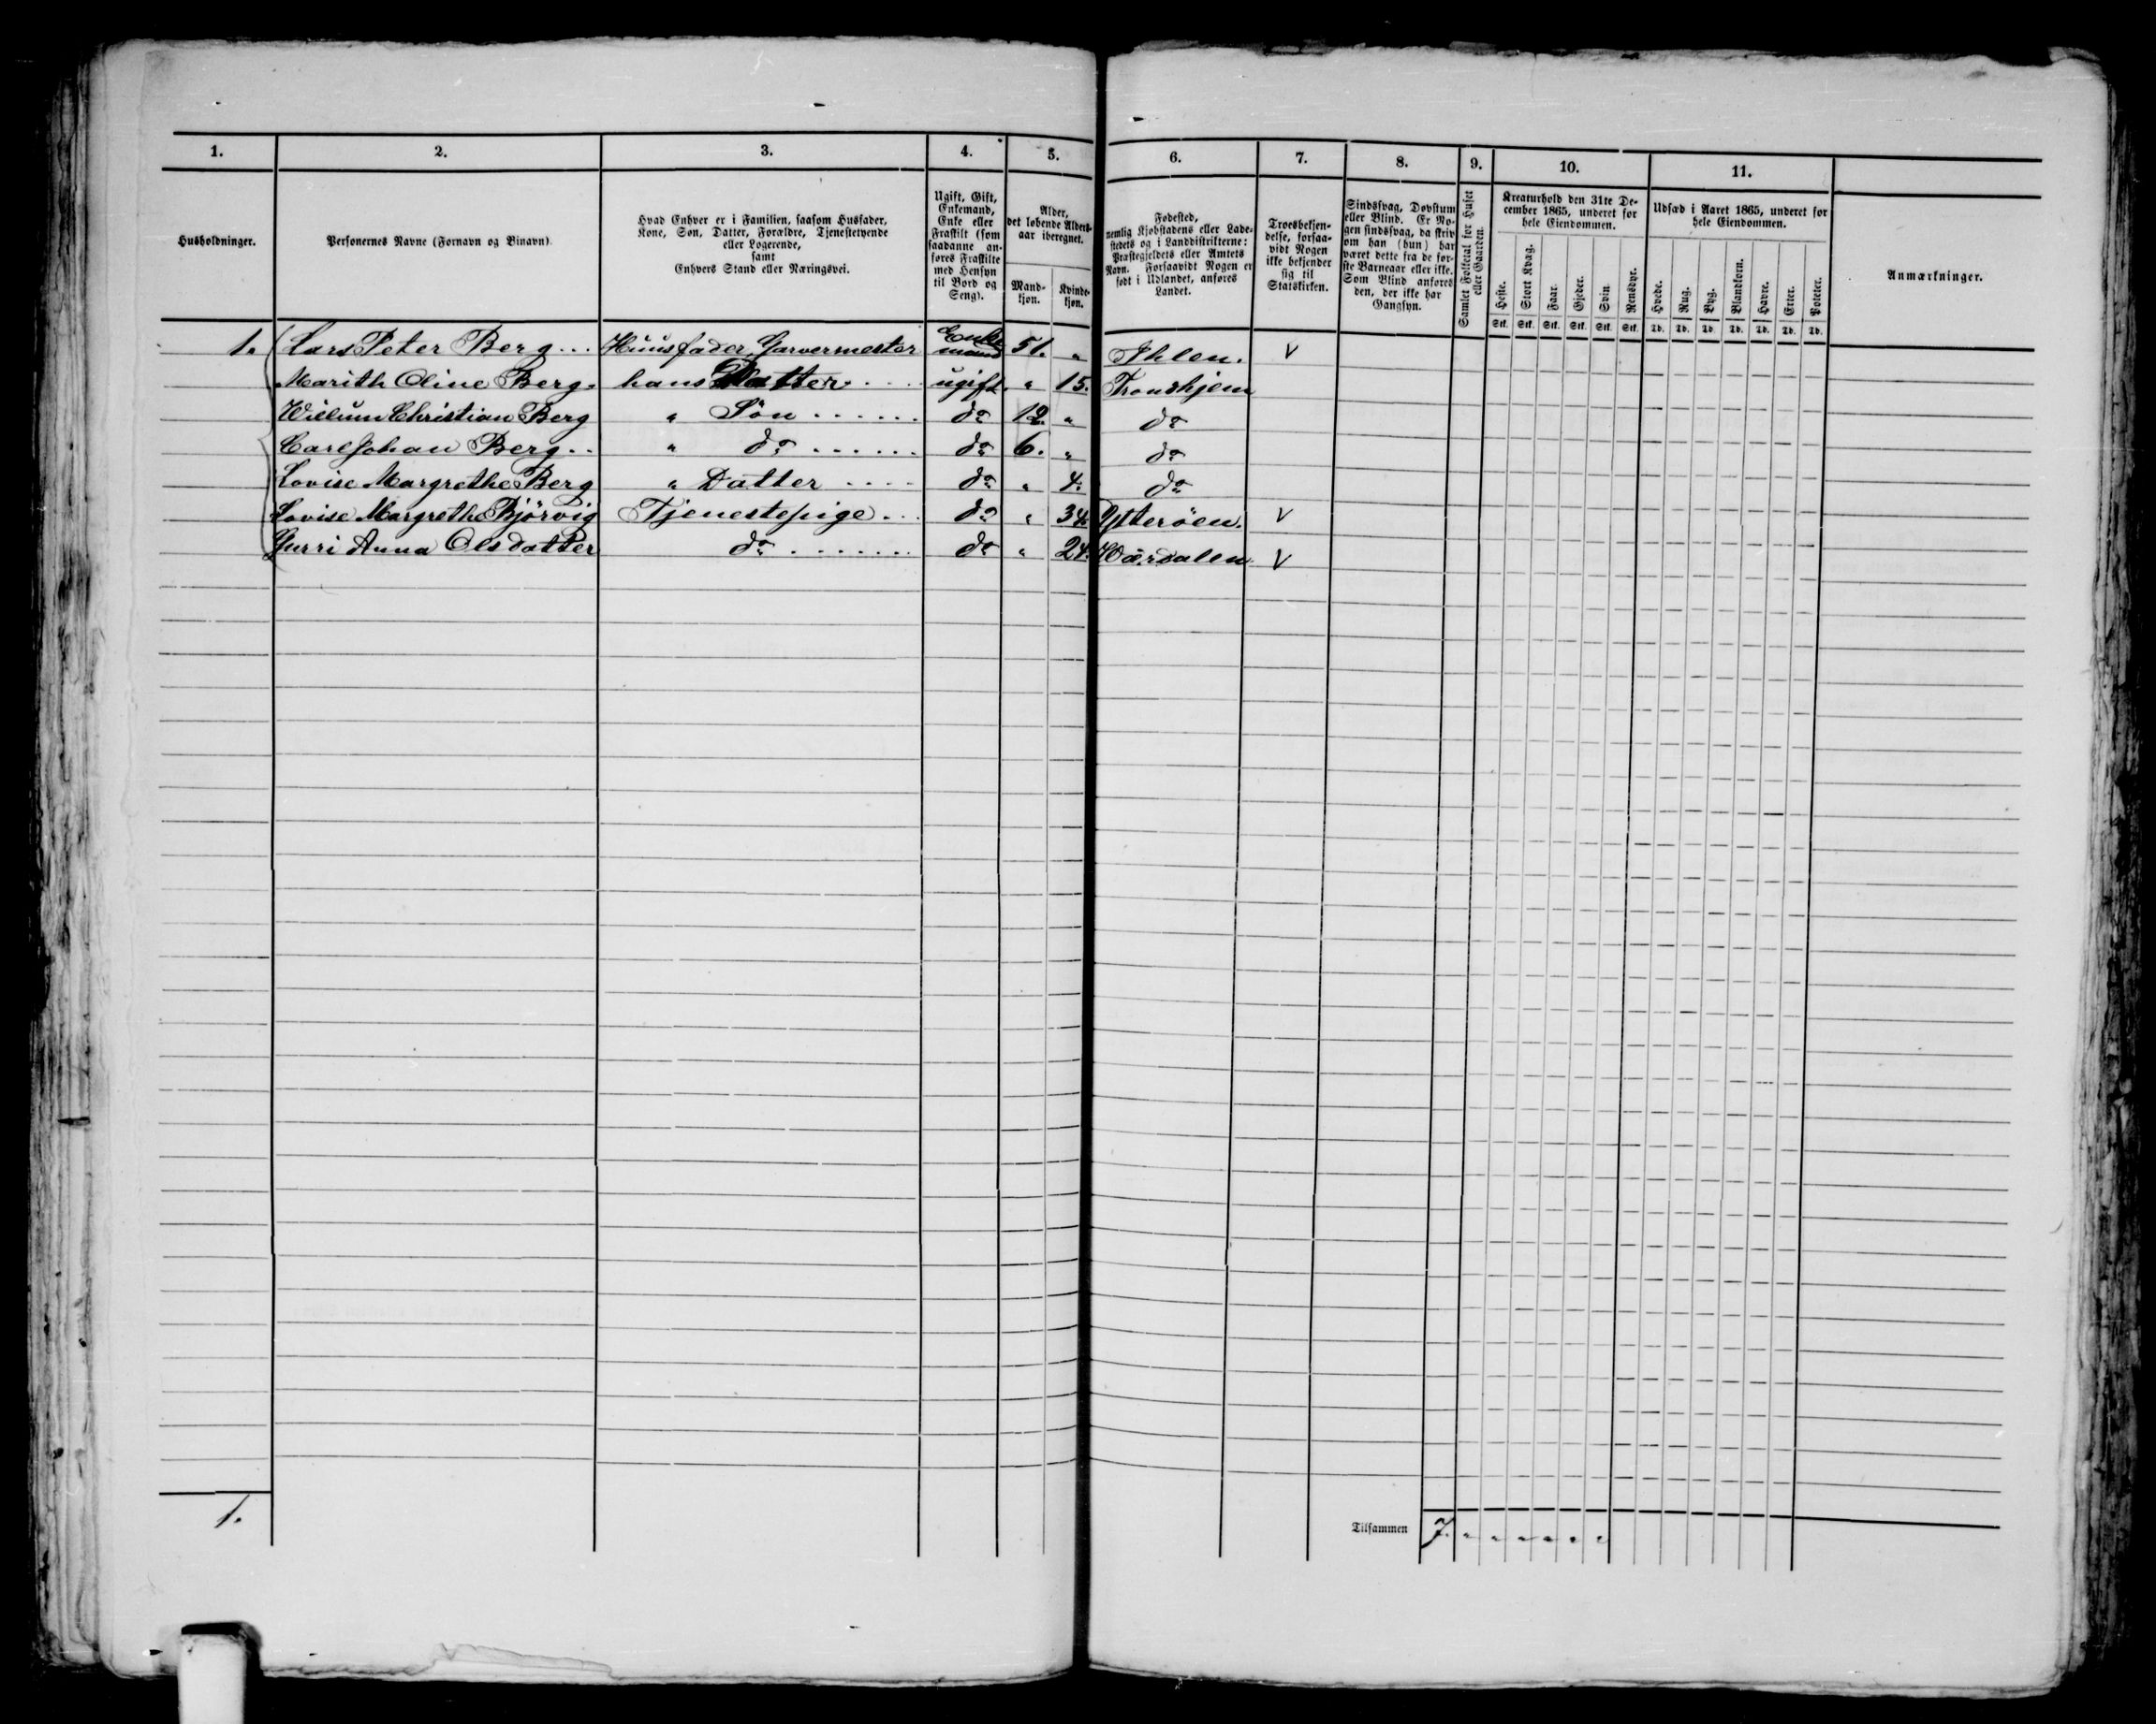 1. 2. 3. 4. 5. 6. 7. 8. 9. 10. 11.
Husholdninger.
Personernes Navne (Fornavn og Binavn).
Hvad Enhver er i Familien, saasom Husfader,
Kone, Søn, Datter, Forældre, Tjenestetyende
eller Logerende,
samt
Enhvers Stand eller Næringsvei.
Ugift, Gift,
Enkemand,
Enke eller
Fraskilt (som
saadanne an-
føres Fraskilte
med Hensyn
til Bord og
Seng).
Alder,
det løbende Alders-
aar iberegnet.
Mand-
kjøn.
Kvinde-
kjøn.
Fødested,
nemlig Kjøbstadens eller Lade-
stedets og i Landdistrikterne:
Præstegjeldets eller Amtets
Navn. Forsaavidt Nogen er
født i Udlandet, anføres
Landet.
Troesbekjen-
delse, forsaa-
vidt Nogen
ikke bekjender
sig til
Statskirken.
Sindssvag, Døvstum
eller Blind. Er No-
gen sindssvag, da skriv
om han (hun) har
været dette fra de før-
ste Barneaar eller ikke.
Som Blind anføres
den, der ikke har
Gangsyn.
Samlet Folketal for Huset
eller Gaarden.
Kreaturhold den 31te De-
cember 1865, underet for
hele Eiendommen.
Heste. Stort Kvæg. Faar. Gjeder. Svin. Rensdyr.
Stk. Stk. Stk. Stk. Stk. Stk.
Udsæd i Aaret 1865, underet for
hele Eiendommen.
Hvede. Rug. Byg. Blandkorn. Havre. Erter. Poteter.
Td. Td. Td. Td. Td. Td. Td.
Anmærkninger.
1. Lars Peter Berg ... Huusfader, Garvermester Enkemand 51. " Ihlen. V
Marith Oline Berg. hans Datter .... ugift. " 15. Trondhjem
Willum Christian Berg " Søn ...... do 12. " do
Carl Johan Berg .. " do ...... do 6. " do
Lovise Margrethe Berg " Datter .... do " 4. do
Lovise Margrethe Bjørvig Tjenestepige ... do " 34. Ytterøen. V
Gurri Anna Olsdatter do ....... do " 24. Værdalen V
1.
Tilsammen 7. " " " " " "